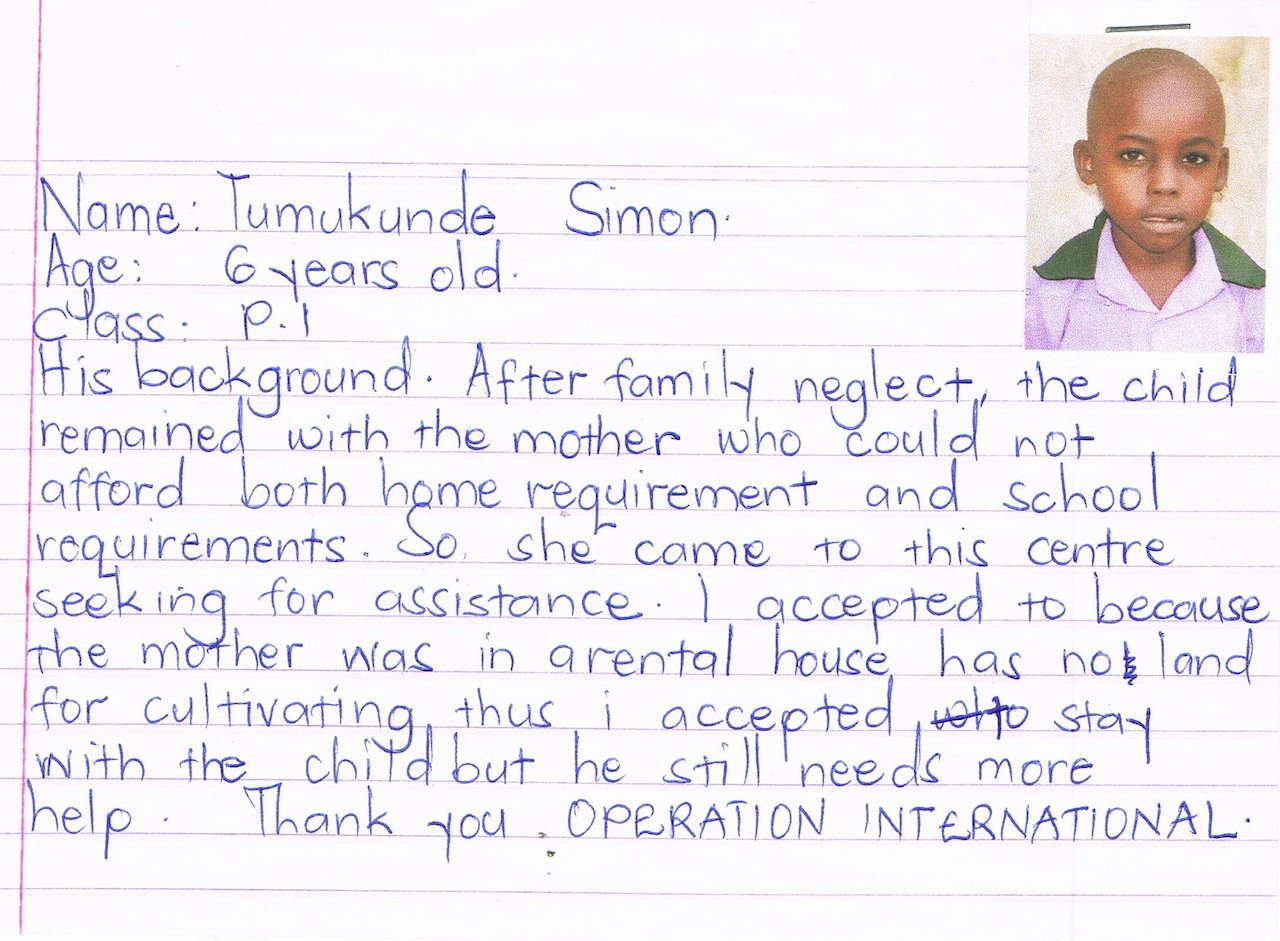 Name: Tumukunde Simon.
Age: 6 years old.
Class: P.1
His background. After family neglect, the child
remained with the mother who could not
afford both home requirement and school
requirements. So, she came to this centre
seeking for assistance. I accepted to because
the mother was in a rental house, has no land
for cultivating, thus i accepted to stay
with the child but he still needs more
help. Thank you. OPERATION INTERNATIONAL.